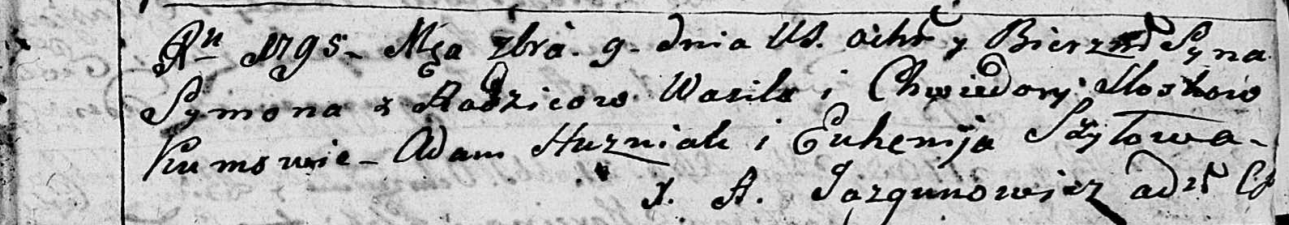 Rn 1795 - Msca 7bra. 9. dnia US. ochr y Bierzm Syna
Symona z Rodzicow Wasila i Chwiedory Moskow
Kumowie - Adam Huzniak i Euhenija Szyłowa -
X. A. Jazgunowicz